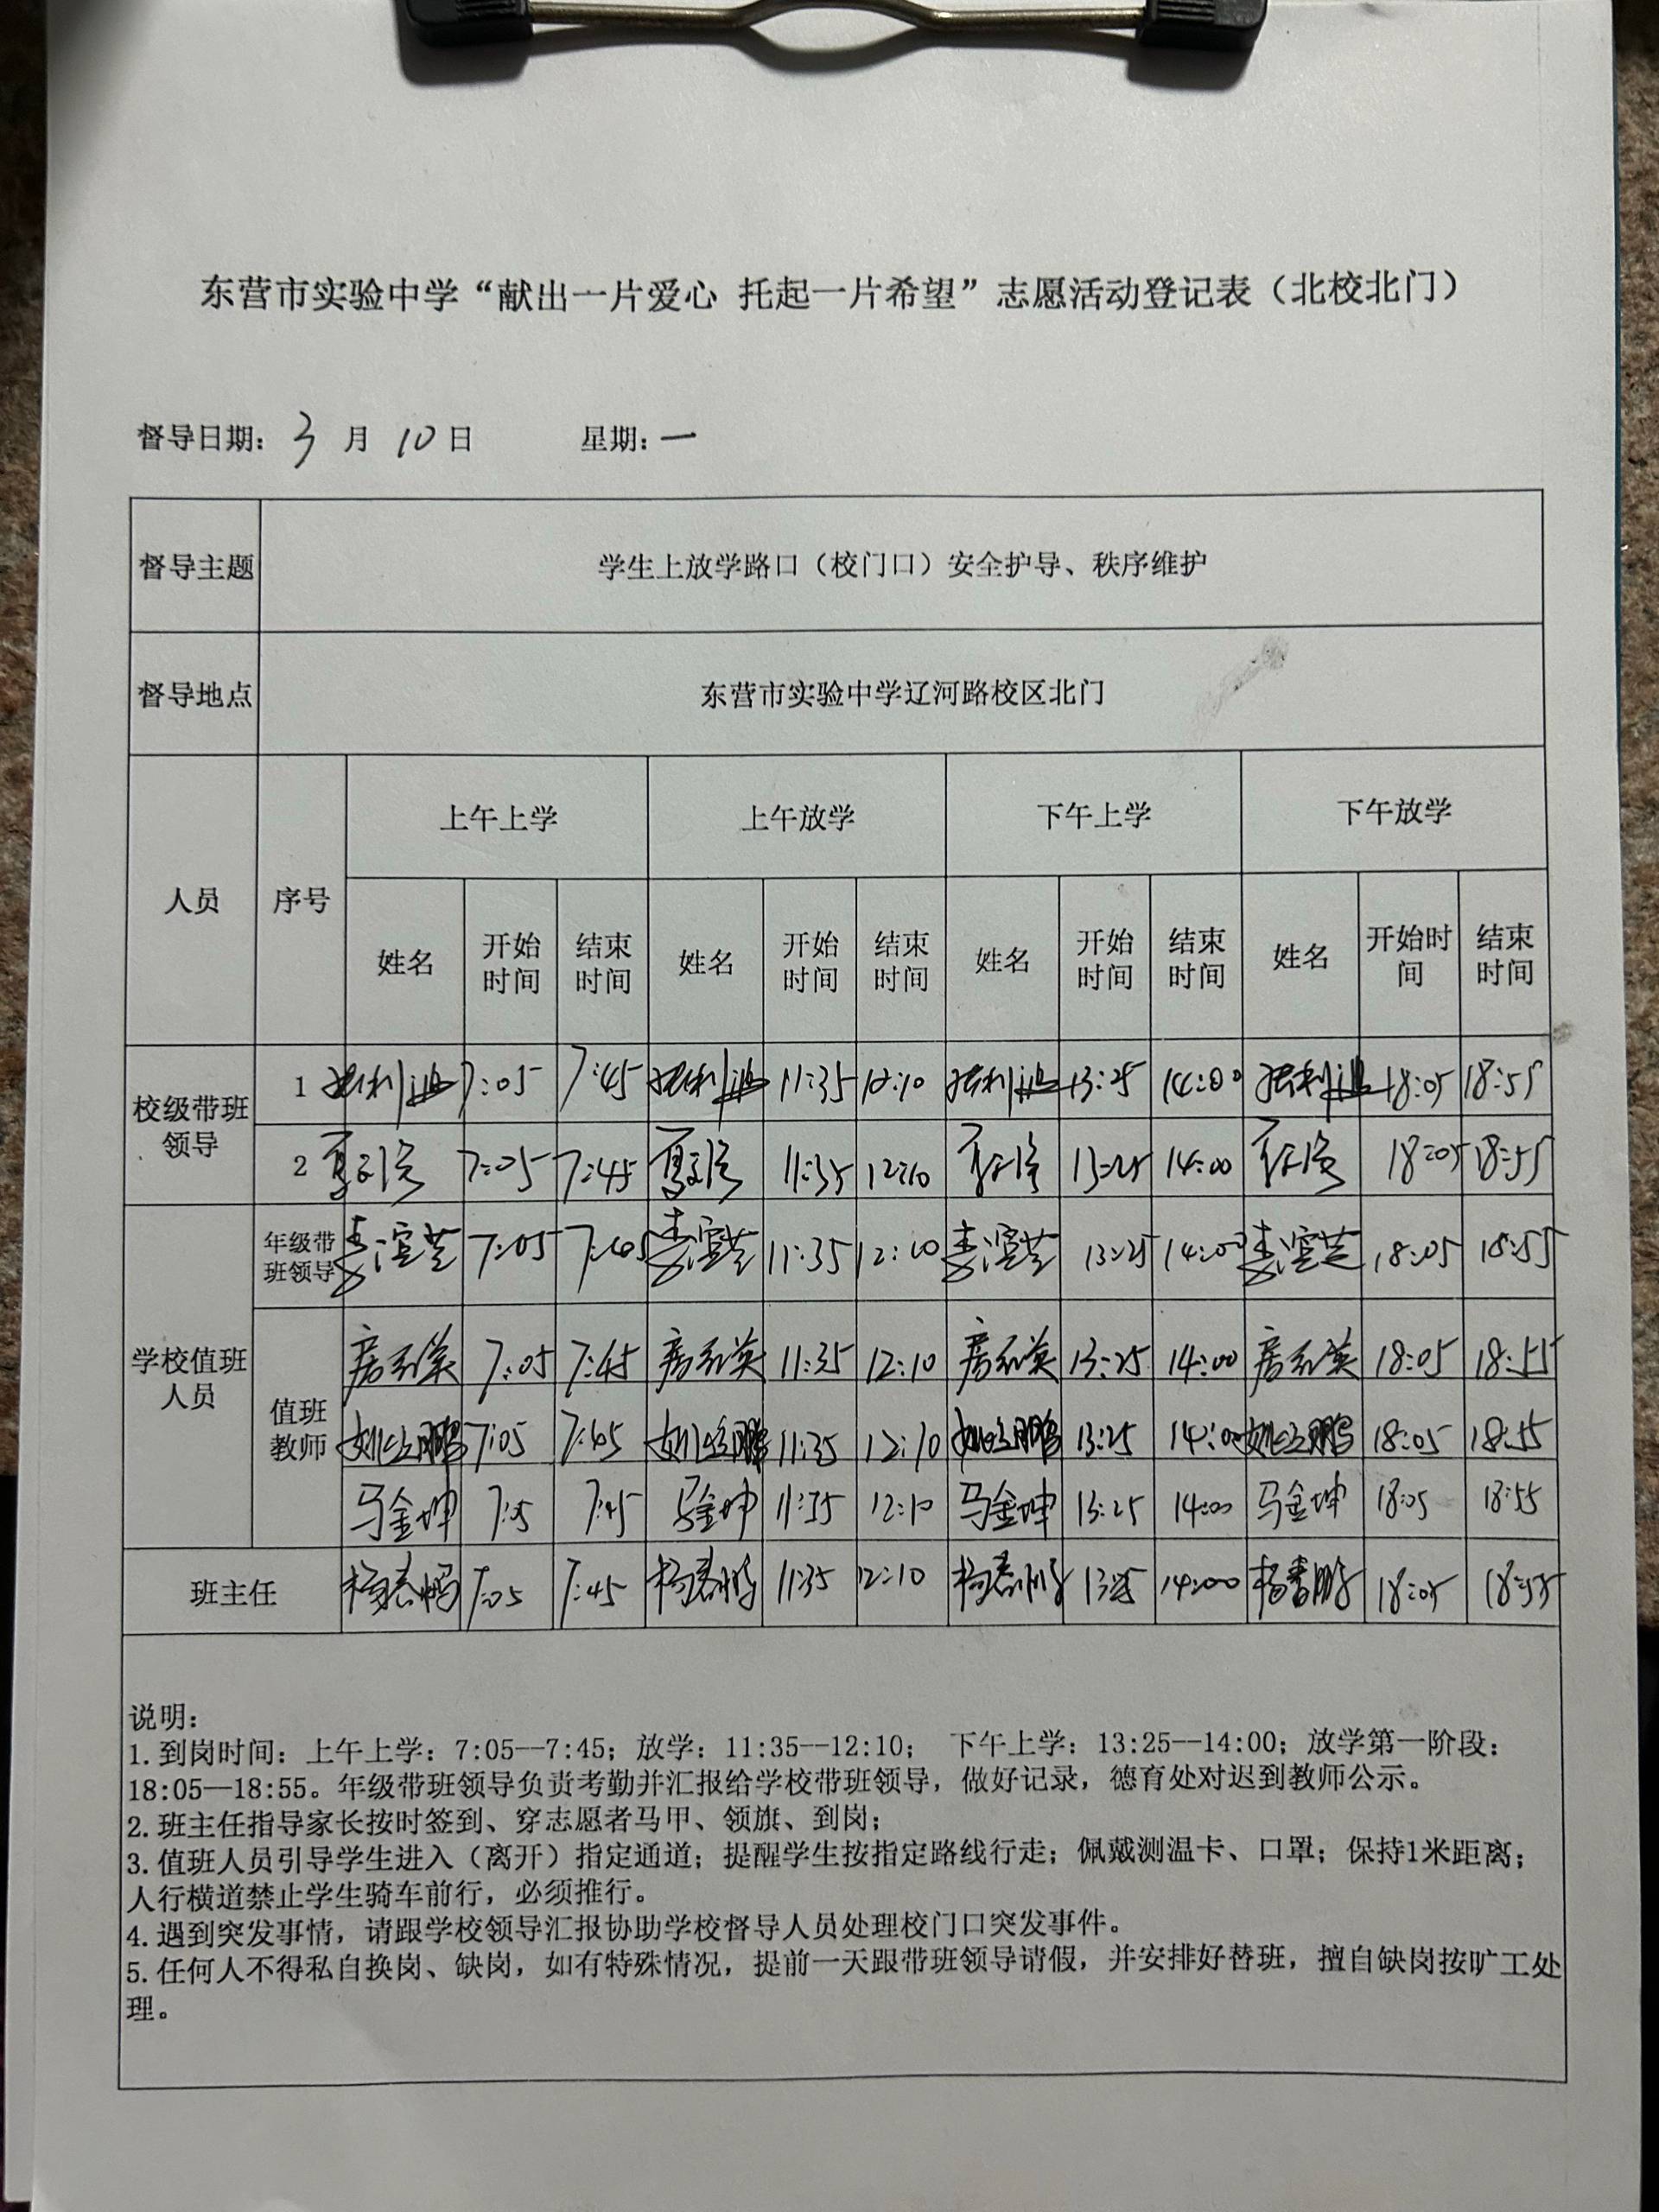 东营市实验中学“献出一片爱心 托起一片希望”志愿活动登记表（北校北门）
督导日期：3 月 10 日 星期：一
督导主题 学生上放学路口（校门口）安全护导、秩序维护
督导地点 东营市实验中学辽河路校区北门
人员 序号 上午上学 上午放学 下午上学 下午放学
姓名 开始时间 结束时间 姓名 开始时间 结束时间 姓名 开始时间 结束时间 姓名 开始时间 结束时间
校级带班领导 1 7:05 7:45 11:35 12:10 13:25 14:00 18:05 18:55
2 7:05 7:45 11:35 12:10 13:25 14:00 18:05 18:55
学校值班人员 年级带班领导 7:05 7:45 11:35 12:10 13:25 14:00 18:05 18:55
值班教师 7:05 7:45 11:35 12:10 13:25 14:00 18:05 18:55
7:05 7:45 11:35 12:10 13:25 14:00 18:05 18:55
马金坤 7:05 7:45 马金坤 11:35 12:10 马金坤 13:25 14:00 马金坤 18:05 18:55
班主任 杨春鹏 7:05 7:45 杨春鹏 11:35 12:10 杨春鹏 13:25 14:00 杨春鹏 18:05 18:55
说明：
1.到岗时间：上午上学：7:05—7:45；放学：11:35—12:10； 下午上学：13:25—14:00；放学第一阶段：
18:05—18:55。年级带班领导负责考勤并汇报给学校带班领导，做好记录，德育处对迟到教师公示。
2.班主任指导家长按时签到、穿志愿者马甲、领旗、到岗；
3.值班人员引导学生进入（离开）指定通道；提醒学生按指定路线行走；佩戴测温卡、口罩；保持1米距离；
人行横道禁止学生骑车前行，必须推行。
4.遇到突发事情，请跟学校领导汇报协助学校督导人员处理校门口突发事件。
5.任何人不得私自换岗、缺岗，如有特殊情况，提前一天跟带班领导请假，并安排好替班，擅自缺岗按旷工处
理。